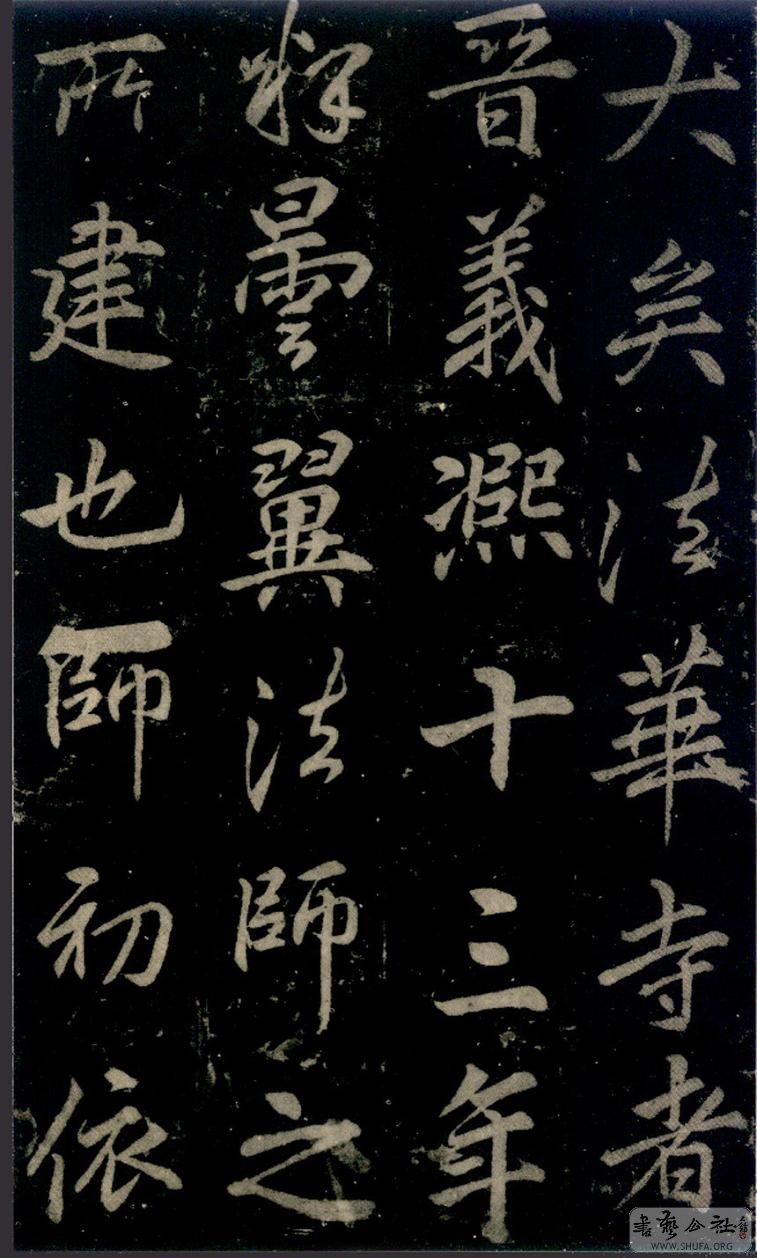 大矣法華寺者
晉義熈十三年
釋曇翼法師之
所建也師初依
書藝公社
WWW.SHUFA.ORG